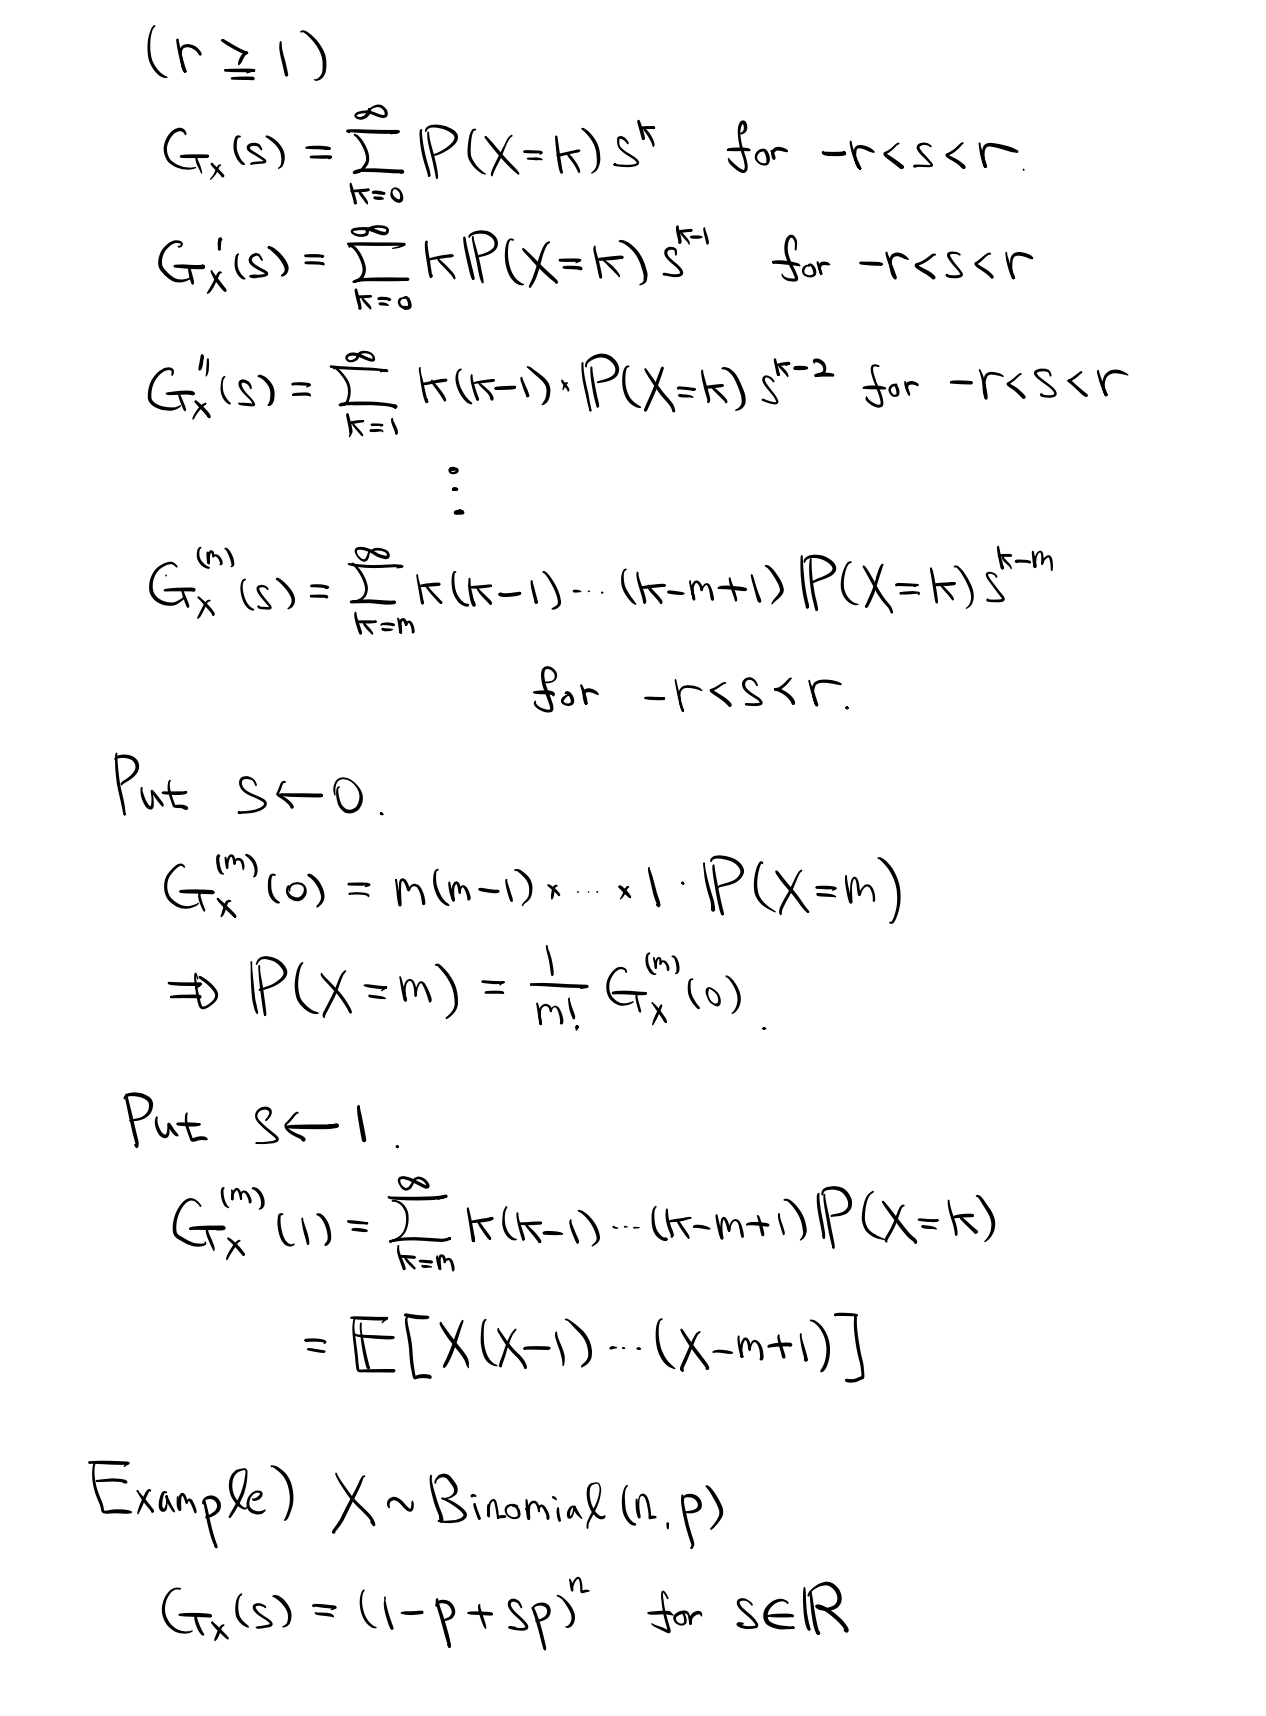 (r ≧ 1)
G_X(s) = ∑_{k=0}^{∞} ℙ(X=k) s^k for -r<s<r.
G_X'(s) = ∑_{k=0}^{∞} kℙ(X=k) s^{k-1} for -r<s<r
G_X''(s) = ∑_{k=1}^{∞} k(k-1)×ℙ(X=k) s^{k-2} for -r<s<r
⋮
G_X^{(m)}(s) = ∑_{k=m}^{∞} k(k-1)⋯(k-m+1) ℙ(X=k) s^{k-m}
for -r<s<r.
Put s←0.
G_X^{(m)}(0) = m(m-1)×⋯×1·ℙ(X=m)
⇒ ℙ(X=m) = \frac{1}{m!} G_X^{(m)}(0).
Put s←1.
G_X^{(m)}(1) = ∑_{k=m}^{∞} k(k-1)⋯(k-m+1)ℙ(X=k)
= 𝔼[X(X-1)⋯(X-m+1)]
Example) X~Binomial(n,p)
G_X(s) = (1-p+sp)^n for s∈ℝ